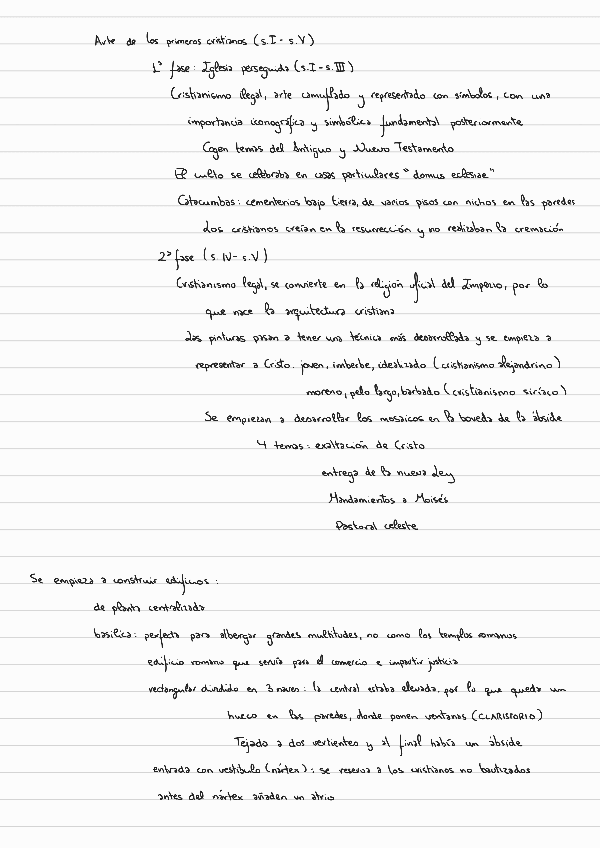 Arte de los primeros cristianos (s.I - s.V)
1ª fase: Iglesia perseguida (s.I - s.III)
Cristianismo ilegal, arte camuflado y representado con símbolos, con una
importancia iconográfica y simbólica fundamental posteriormente
Cogen temas del Antiguo y Nuevo Testamento
El culto se celebraba en casas particulares "domus eclesiae"
Catacumbas: cementerios bajo tierra, de varios pisos con nichos en las paredes
Los cristianos creían en la resurrección y no realizaban la cremación
2ª fase (s. IV - s.V)
Cristianismo legal, se convierte en la religión oficial del Imperio, por lo
que nace la arquitectura cristiana
Las pinturas pasan a tener una técnica más desarrollada y se empieza a
representar a Cristo. joven, imberbe, idealizado (cristianismo alejandrino)
moreno, pelo largo, barbado (cristianismo siríaco)
Se empiezan a desarrollar los mosaicos en la boveda de la ábside
4 temas: exaltación de Cristo
entrega de la nueva Ley
Mandamientos a Moisés
Pastoral celeste
Se empieza a construir edificios:
de planta centralizada
basílica: perfecta para albergar grandes multitudes, no como los templos romanos
edificio romano que servía para el comercio e impartir justicia
rectangular dividido en 3 naves: la central estaba elevada. por lo que queda un
hueco en las paredes, donde ponen ventanas (CLARISTORIO)
Tejado a dos vertientes y al final había un ábside
entrada con vestíbulo (nártex): se reserva a los cristianos no bautizados
antes del nártex añaden un atrio